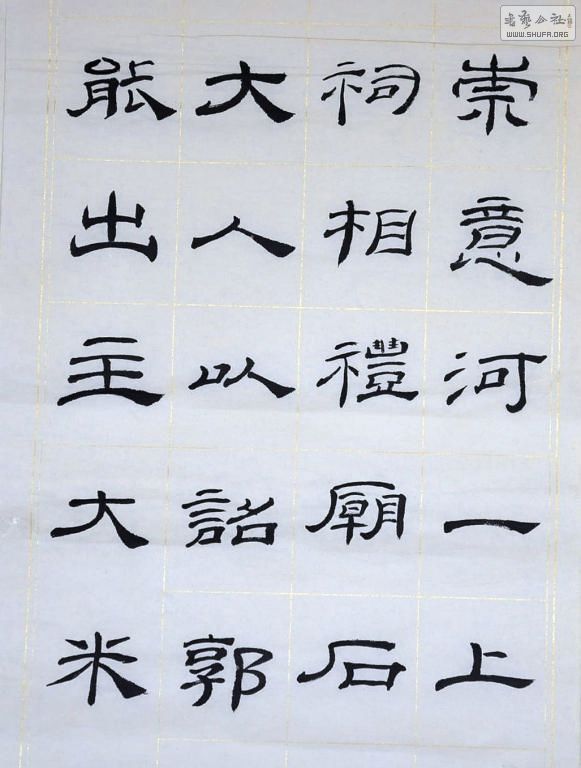 崇意河一上
祠相禮廟石
大人以詔郭
能出主大米
書藝公社
WWW.SHUFA.ORG